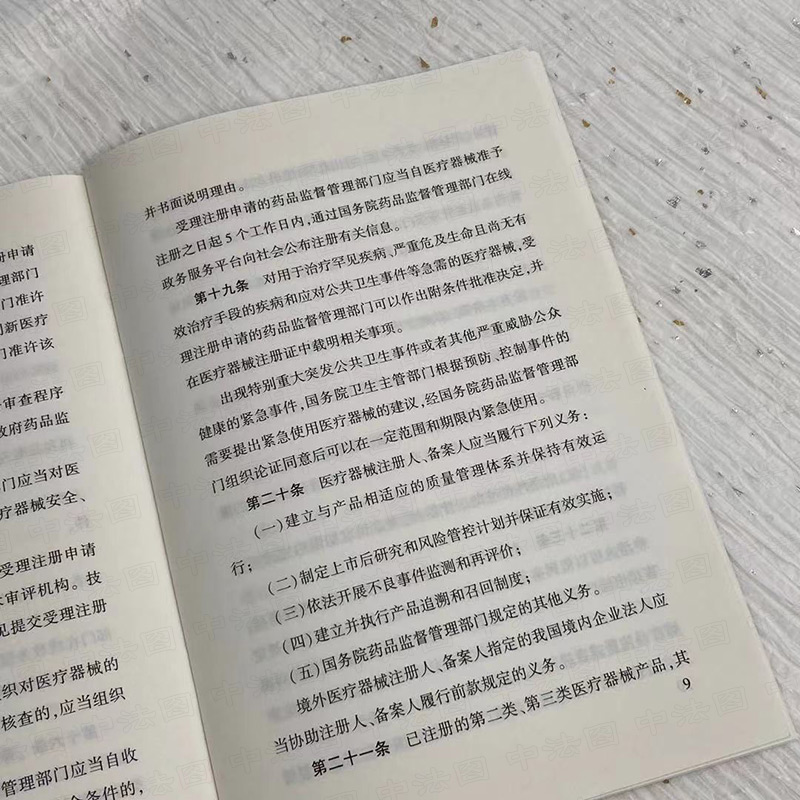 册申请
理部门
门准许
创新医疗
门准许该
审查程序
政府药品监
门应当对医
疗器械安全、
受理注册申请
术审评机构。技
见提交受理注册
组织对医疗器械的
核查的，应当组织
管理部门应当自收
条件的，
并书面说明理由。
受理注册申请的药品监督管理部门应当自医疗器械准予
注册之日起5个工作日内，通过国务院药品监督管理部门在线
政务服务平台向社会公布注册有关信息。
第十九条 对用于治疗罕见疾病、严重危及生命且尚无有
效治疗手段的疾病和应对公共卫生事件等急需的医疗器械，受
理注册申请的药品监督管理部门可以作出附条件批准决定，并
在医疗器械注册证中载明相关事项。
出现特别重大突发公共卫生事件或者其他严重威胁公众
健康的紧急事件，国务院卫生主管部门根据预防、控制事件的
需要提出紧急使用医疗器械的建议，经国务院药品监督管理部
门组织论证同意后可以在一定范围和期限内紧急使用。
第二十条 医疗器械注册人、备案人应当履行下列义务：
（一）建立与产品相适应的质量管理体系并保持有效运
行；
（二）制定上市后研究和风险管控计划并保证有效实施；
（三）依法开展不良事件监测和再评价；
（四）建立并执行产品追溯和召回制度；
（五）国务院药品监督管理部门规定的其他义务。
境外医疗器械注册人、备案人指定的我国境内企业法人应
当协助注册人、备案人履行前款规定的义务。
第二十一条 已注册的第二类、第三类医疗器械产品，其
9